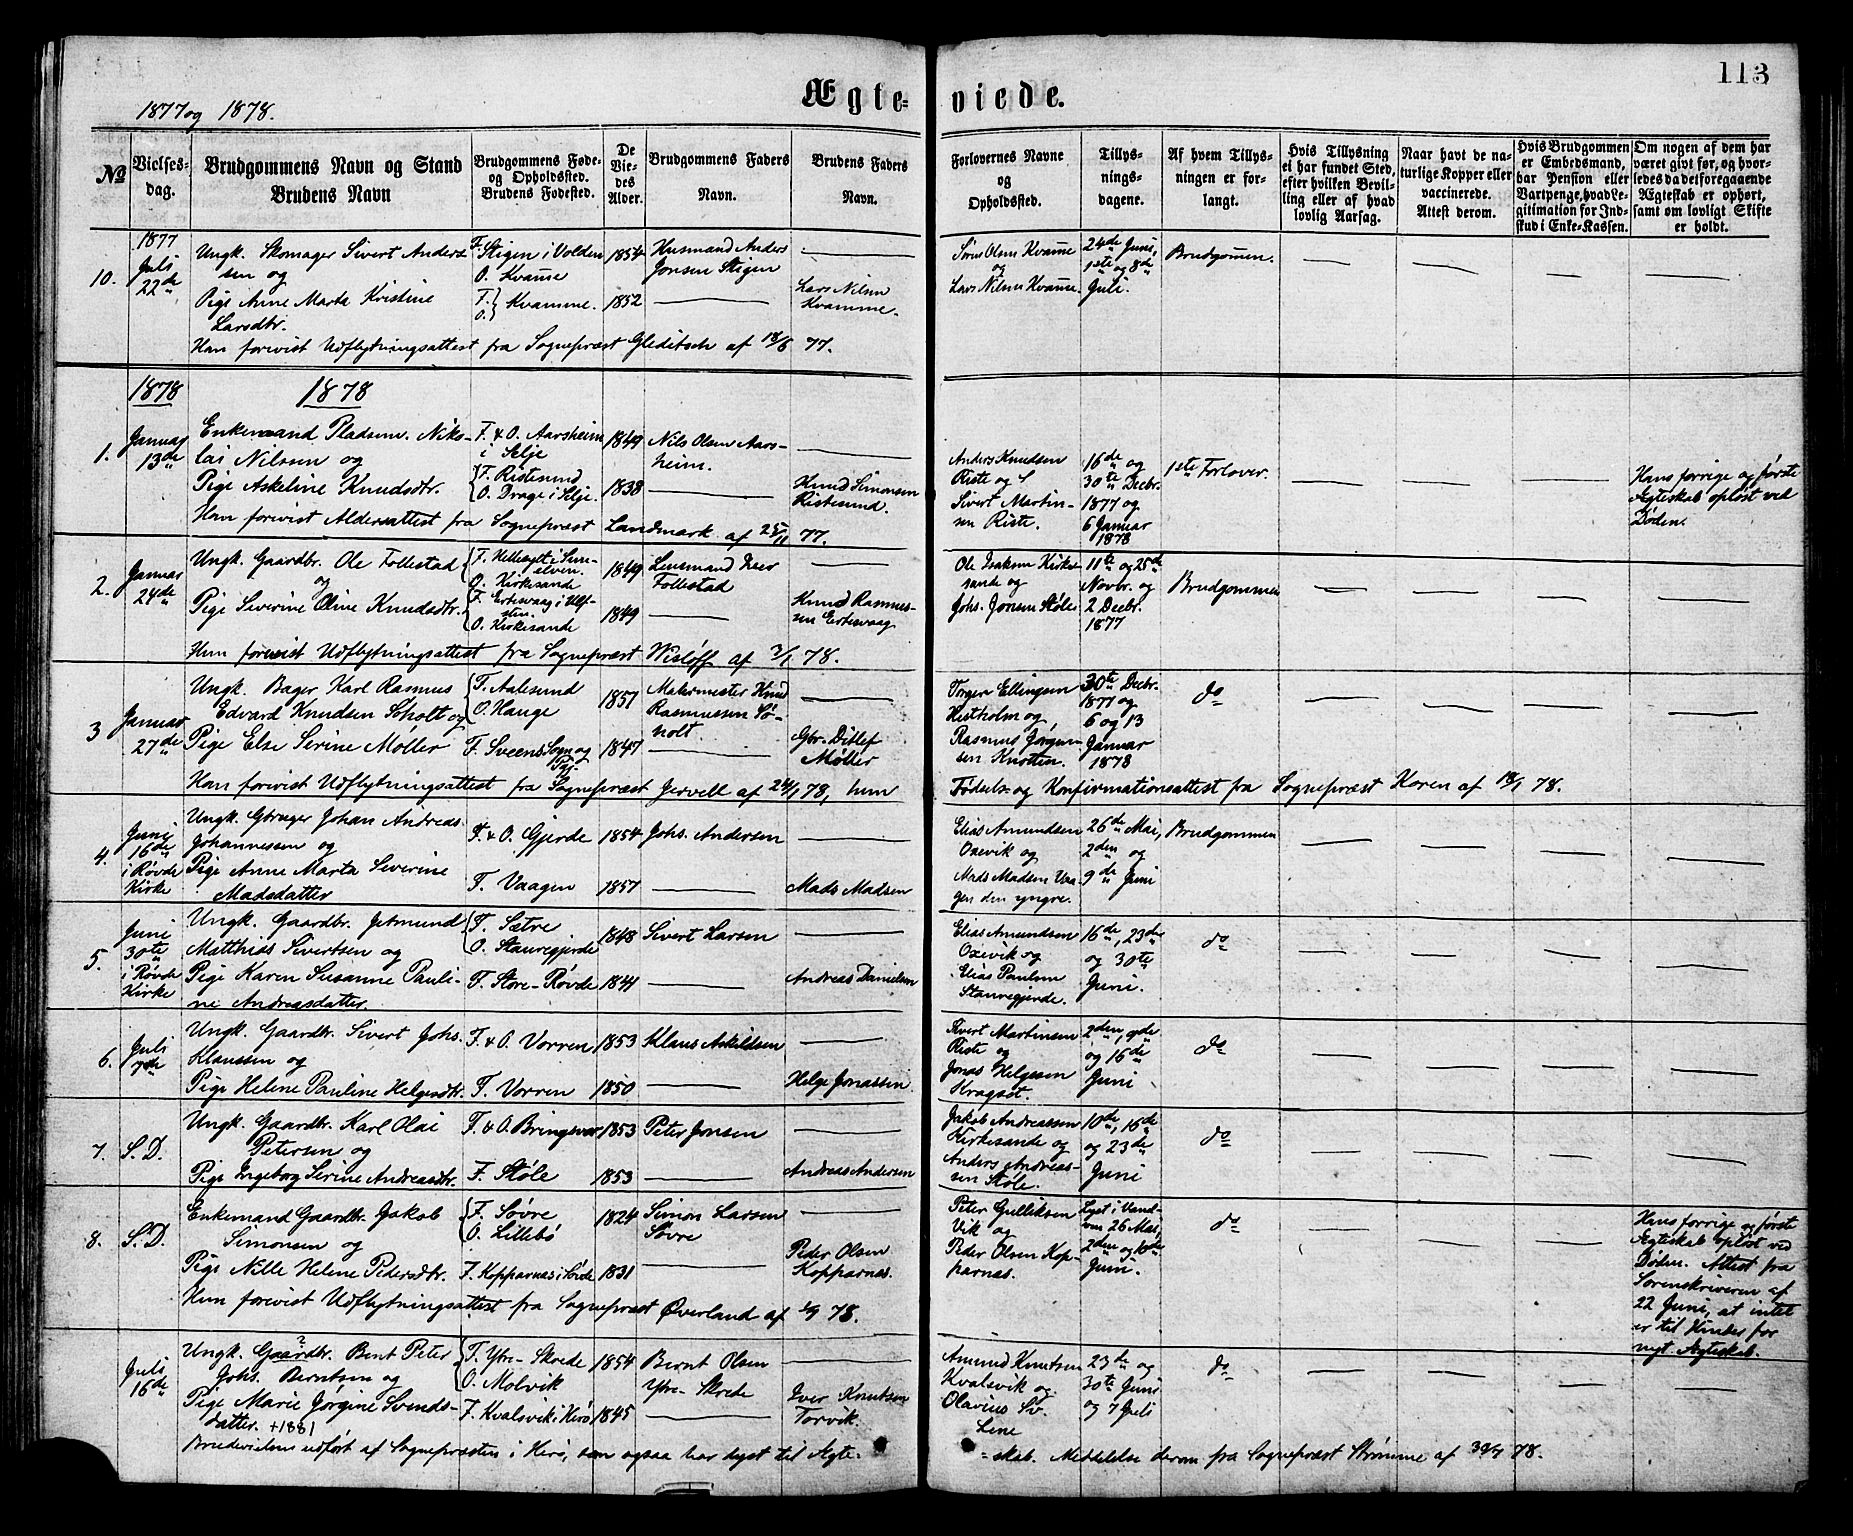 113
1877 og 1878.
Ægte-
viede.
No
Vielses-
dag.
Brudgommens Navn og Stand
Brudens Navn
Brudgommens Føde-
og Opholdssted.
Brudens Fødested.
De
Vie-
des
Alder.
Brudgommens Faders
Navn.
Brudens Faders
Navn.
Forlovernes Navne
og
Opholdssted.
Tillys-
nings-
dagene.
Af hvem Tillys-
ningen er for-
langt.
Hvis Tillysning
ei har fundet Sted,
efter hvilken Bevil-
ling eller af hvad
lovlig Aarsag.
Naar havt de na-
turlige Kopper eller
vaccinerede.
Attest derom.
Hvis Brudgommen
er Embedsmand,
har Pension eller
Vartpenge, hvad Le-
gitimation for Ind-
skud i Enke-Kassen.
Om nogen af dem har
været givt før, og hvor-
ledes da det foregaaende
Ægteskab er ophørt,
samt om lovligt Skifte
er holdt.
10.
1877
Juli
22de
Ungk. Skomager Sivert Anders
sen og
Pige Anne Marta Kristine
Larsdtr.
F. Stigen i Volden
O. Kvamme
F. O. Kvamme.
1854
1852
Husmand Anders
Jonsen Stigen
Lars Nilsen
Kvamme.
Søren Olsen Kvamme
og
Lars Nilsen Kvamme.
24de Juni,
1ste og 8de
Juli.
Brudgommen.
Han forevist Udflytningsattest fra Sognepræst Gleditsch af 18/6 77.
1878
1878
1.
Januar
13de
Enkemand Pladsm. Niko-
lai Nilsen og
Pige Askeline Knudsdtr.
F. & O. Aarsheim
i Selje
F. Ristesund
O. Drage i Selje.
1849
1838
Nils Olsen Aars-
heim.
Knud Simonsen
Ristesund.
Anders Knudsen
Riste og
Sivert Martin-
sen Riste.
16de og
30te Decbr.
1877 og
6 Januar
1878
1ste Forlover.
Hans forrige og første
Ægteskab opløst ved
Døden.
Han forevist Aldersattest fra Sognepræst Landmark af 25/11 77.
2.
Januar
24de
Ungk. Gaardbr. Ole Follestad
og
Pige Severine Oline Knudsdtr.
F. Hellesylt i Sun-
elven.
O. Kirkesande
F. Ertesvaag i Ulf-
sten.
O. Kirkesande
1849
1849
Lensmand Iver
Follestad
Knud Rasmus-
sen Ertesvaag
Ole Isaksen Kirke-
sande og
Johs. Jonsen Støle
11te og 25de
Novbr. og
2 Decbr.
1877
Brudgommen
Hun forevist Udflytningsattest fra Sognepræst Wisløff af 2/1 78.
3
Januar
27de
Ungk. Bager Karl Rasmus
Edvard Knudsen Soholt og
Pige Else Serine Møller
F. Aalesund
O. Hauge
F. Sveens Sogn og
Pgj.
1851
1847
Malermester Knud
Rasmussen Sø-
holt.
Gbr. Ditlef
Møller
Torger Ellingsen
Hestholm og,
Rasmus Jørgen-
sen Knotten.
30te Decbr.
1877 og
6 og 13
Januar
1878
do
Han forevist Udflytningsattest fra Sognepræst Jervell af 24/1 78, hun
Fødsels og Konfirmationsattest fra Sognepræst Koren af 18/1 78.
4.
Juni
16de
i Røvde
Kirke
Ungk. Gbruger Johan Andreas
Johannessen og
Pige Anne Marta Severine
Madsdatter
F. & O. Gjerde
F. Vaagen
1854
1857
Johs. Andersen
Mads Madsen
Elias Amundsen
Oxevik og
Mads Madsen Vaa-
gen den yngre.
26de Mai,
2den og
9de Juni
Brudgommen
5.
Juni
30te
i Røvde
Kirke
Ungk. Gaardbr. Jetmund
Matthias Sivertsen og
Pige Karen Susanne Pauli-
ne Andreasdatter.
F. Sætre
O. Stauregjerde
F. Store-Røvde
1848
1841
Sivert Larsen
Andreas Danielsen
Elias Amundsen
Oxevik og
Elias Paulsen
Stauregjerde.
16de, 23de
og 30te
Juni.
do
6.
Juli
7de
Ungk. Gaardbr. Sivert Johs.
Klaussen og
Pige Helene Pauline Helgesdtr.
F. & O. Vorren
F. Vorren
1853
1850
Klaus Askildsen
Helge Jonassen
Sivert Martinsen
Riste og
Jonas Helgesen
Kragsæt.
2den, 9de
og 16de
Juni
do
7.
S. D.
Ungk. Gaardbr. Karl Olai
Petersen og
Pige Ingeborg Serine Andreasdtr.
F. & O. Bringsvor
F. Støle
1853
1853
Peter Jonsen
Andreas Andersen
Jakob Andreassen
Kirkesande og
Anders Andreas-
sen Støle.
10de, 16de
og 23de
Juni
do
8.
S. D.
Enkemand Gaardbr. Jakob
Simonsen og
Pige Nille Helene Pedersdtr.
F. Søvre
O. Lillebø
F. Kopparnas i Søvde
1824
1831
Simon Larsen
Søvre
Peder Olsen
Kopparnas.
Peter Gulliksen
Vik og
Peder Olsen Kop-
parnas.
Lyst i Vanel-
ven 26 Mai,
2den og 10de
Juni.
do
Hans forrige og første
Ægteskab opløst ved
Døden. Attest fra
Sorenskriveren af
22 Juni, at intet
er til Hinder for
nyt Ægteskab.
Hun forevist Udflytningsattest fra Sognepræst Øverland af 78.
Juli
16de
Ungk. Gaardbr. Bent Peter
Johs. Berntsen og
Pige Marie Jørgine Svends-
datter. +1881
F. Ytre-Skrede
O. Molvik
F. Kvalsvik i Herø
1854
1845
Bernt Olsen
Ytre-Skrede
Iver Knutsen
Torvik.
Amund Knutsen
Kvalsvik og
Olavius Sv.
Lene
23de og
30te Juni
og 7 Juli
do
Brudevielsen udført af Sognepræsten i Herø, som ogsaa har lyst til Ægte-
-skab. Meddelelse derom fra Sognepræst Strømme af 30/7 78.